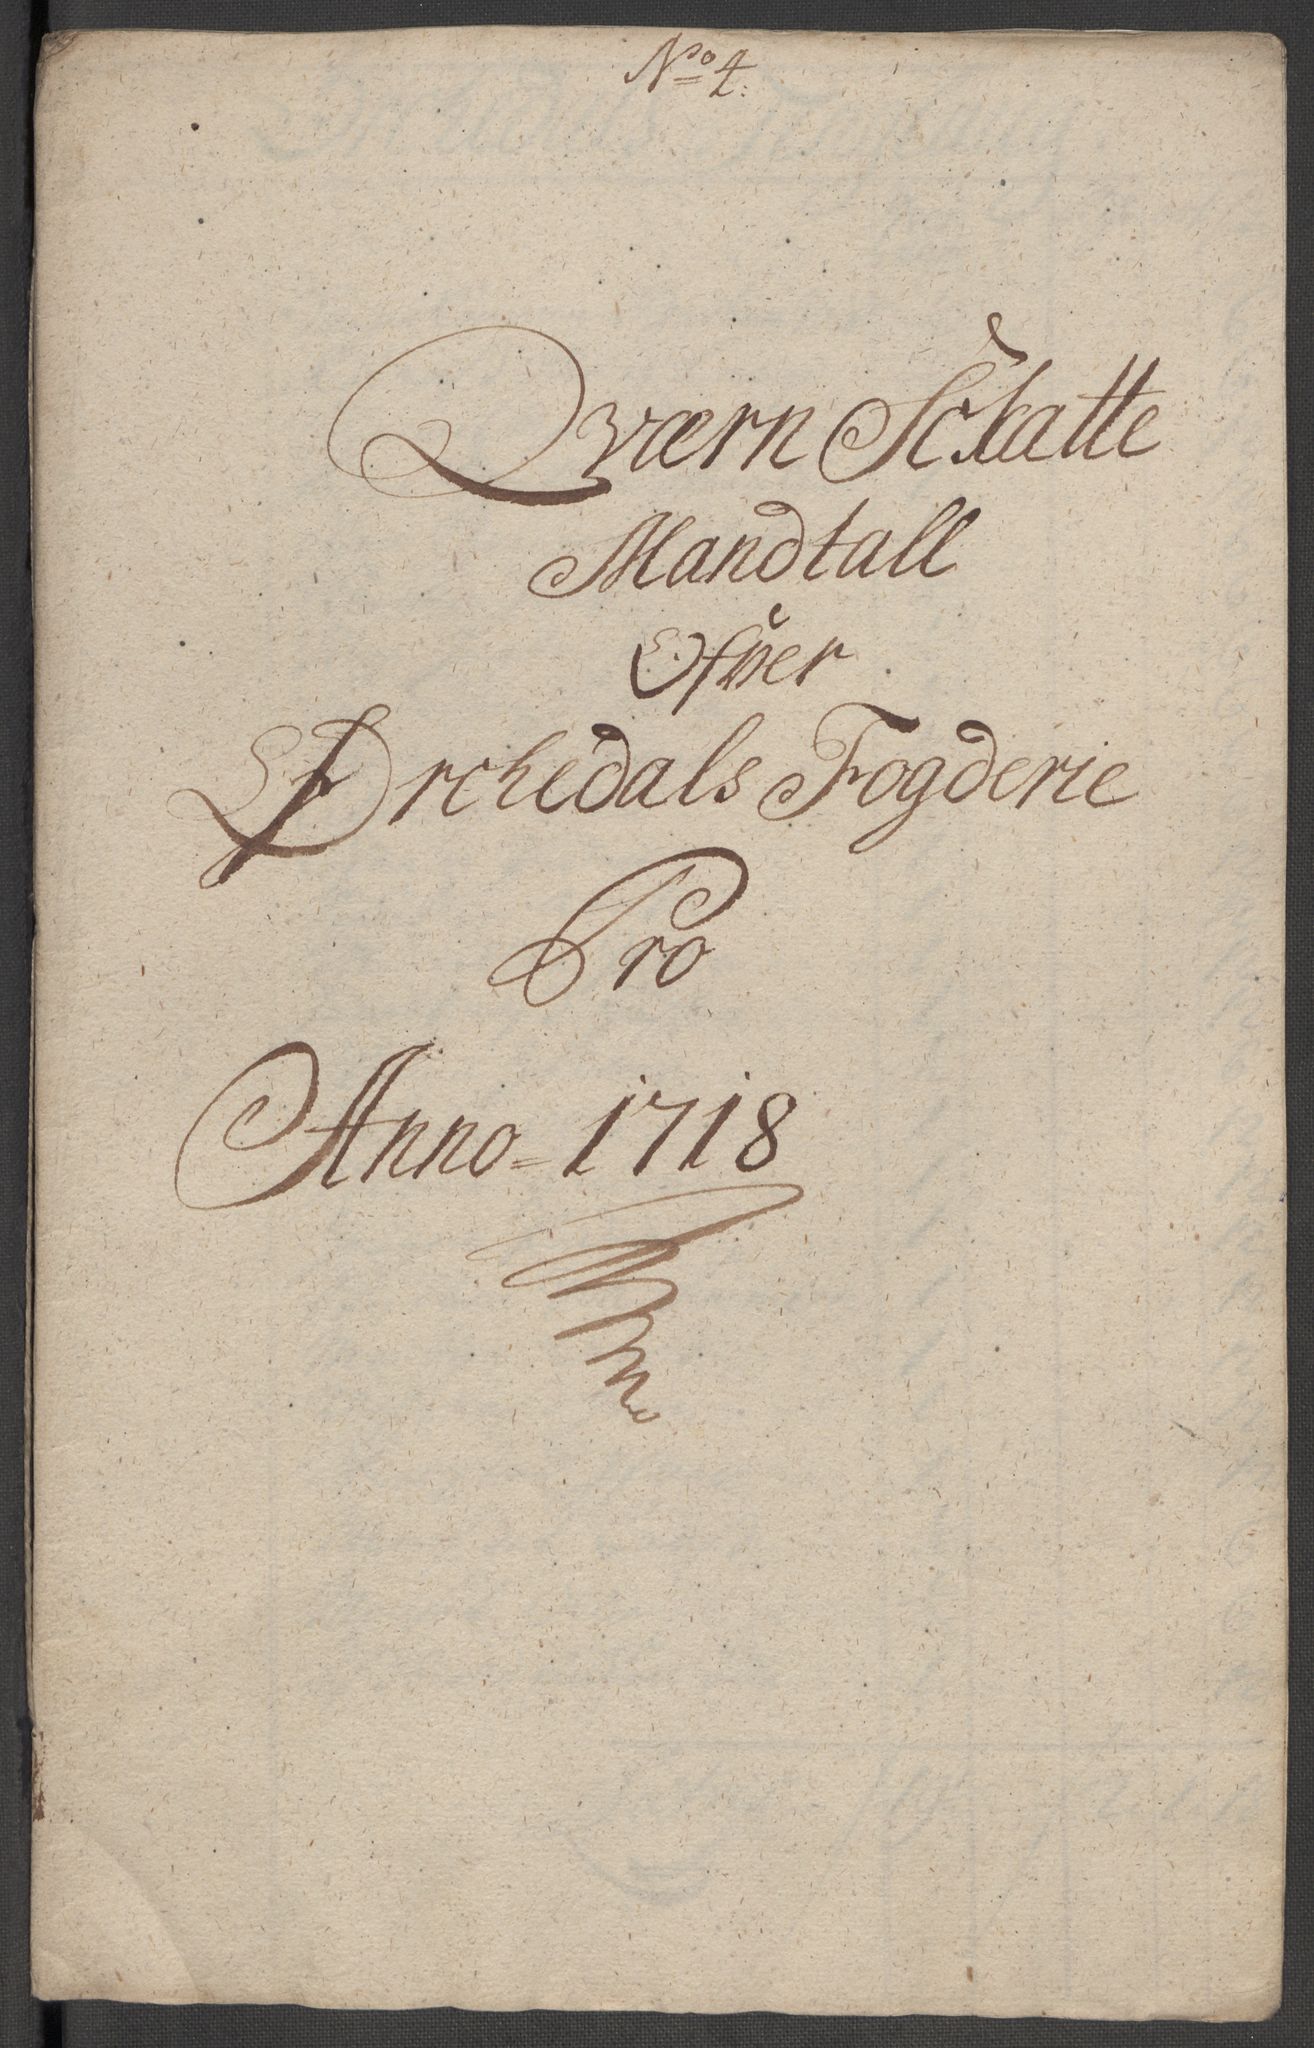 No 4:
Qværn Schatte
Mandtall
Ofver
Ørchedals Fogderie
Pro
Anno = 1718